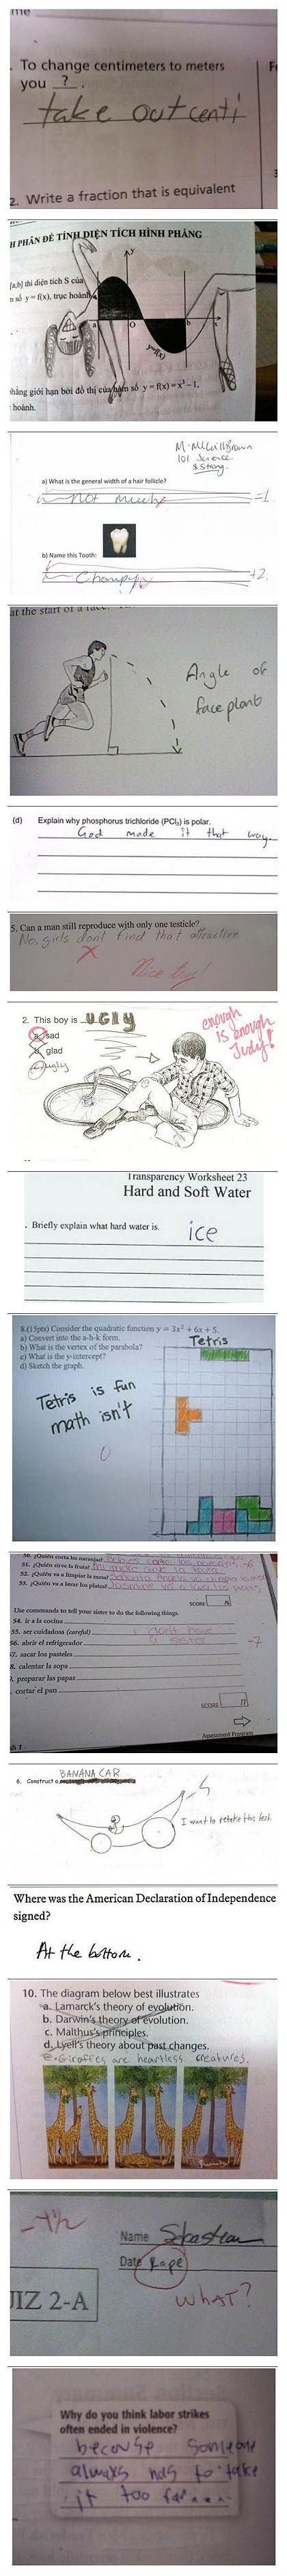 me
. To change centimeters to meters
you ? .
take out centi
2. Write a fraction that is equivalent
H PHÂN ĐỂ TÍNH DIỆN TÍCH HÌNH PHẲNG
[a,b] thì diện tích S của
n số y = f(x), trục hoành
y
a
O
b
x
y=f(x)
phẳng giới hạn bởi đồ thị của hàm số y = f(x) = x³ – 1,
hoành.
101 Science
a) What is the general width of a hair follicle?
Not much
-1
b) Name this Tooth:
Chompy
+2
at the start of a race.
Angle of
face plant
(d) Explain why phosphorus trichloride (PCl₃) is polar.
God made it that way.
5. Can a man still reproduce with only one testicle?
No, girls dont find that attractive
Nice try!
2. This boy is UGLY
a. sad
b. glad
c. ugly
enough
is enough
Judy!
Transparency Worksheet 23
Hard and Soft Water
. Briefly explain what hard water is.
ice
8.(15pts) Consider the quadratic function y = 3x² + 6x + 5.
a) Convert into the a-h-k form.
b) What is the vertex of the parabola?
c) What is the y-intercept?
d) Sketch the graph.
Tetris
Tetris is fun
math isn't
0
50. ¿Quién corta las naranjas?
51. ¿Quién sirve la fruta?
52. ¿Quién va a limpiar la mesa?
53. ¿Quién va a lavar los platos?
SCORE
Use commands to tell your sister to do the following things.
54. ir a la cocina
55. ser cuidadosa (careful) i don't have
56. abrir el refrigerador a sister
-7
7. sacar los pasteles
8. calentar la sopa
9. preparar las papas
. cortar el pan
SCORE
Assessment Program
sh 1
BANANA CAR
6. Construct a
I want to retake this test.
Where was the American Declaration of Independence
signed?
At the bottom.
10. The diagram below best illustrates
a. Lamarck's theory of evolution.
b. Darwin's theory of evolution.
c. Malthus's principles.
d. Lyell's theory about past changes.
e. Giraffes are heartless creatures.
-½
Name Sebastian
Date Rape
UIZ 2-A
WHAT?
Why do you think labor strikes
often ended in violence?
because someone
always has to take
it too far...